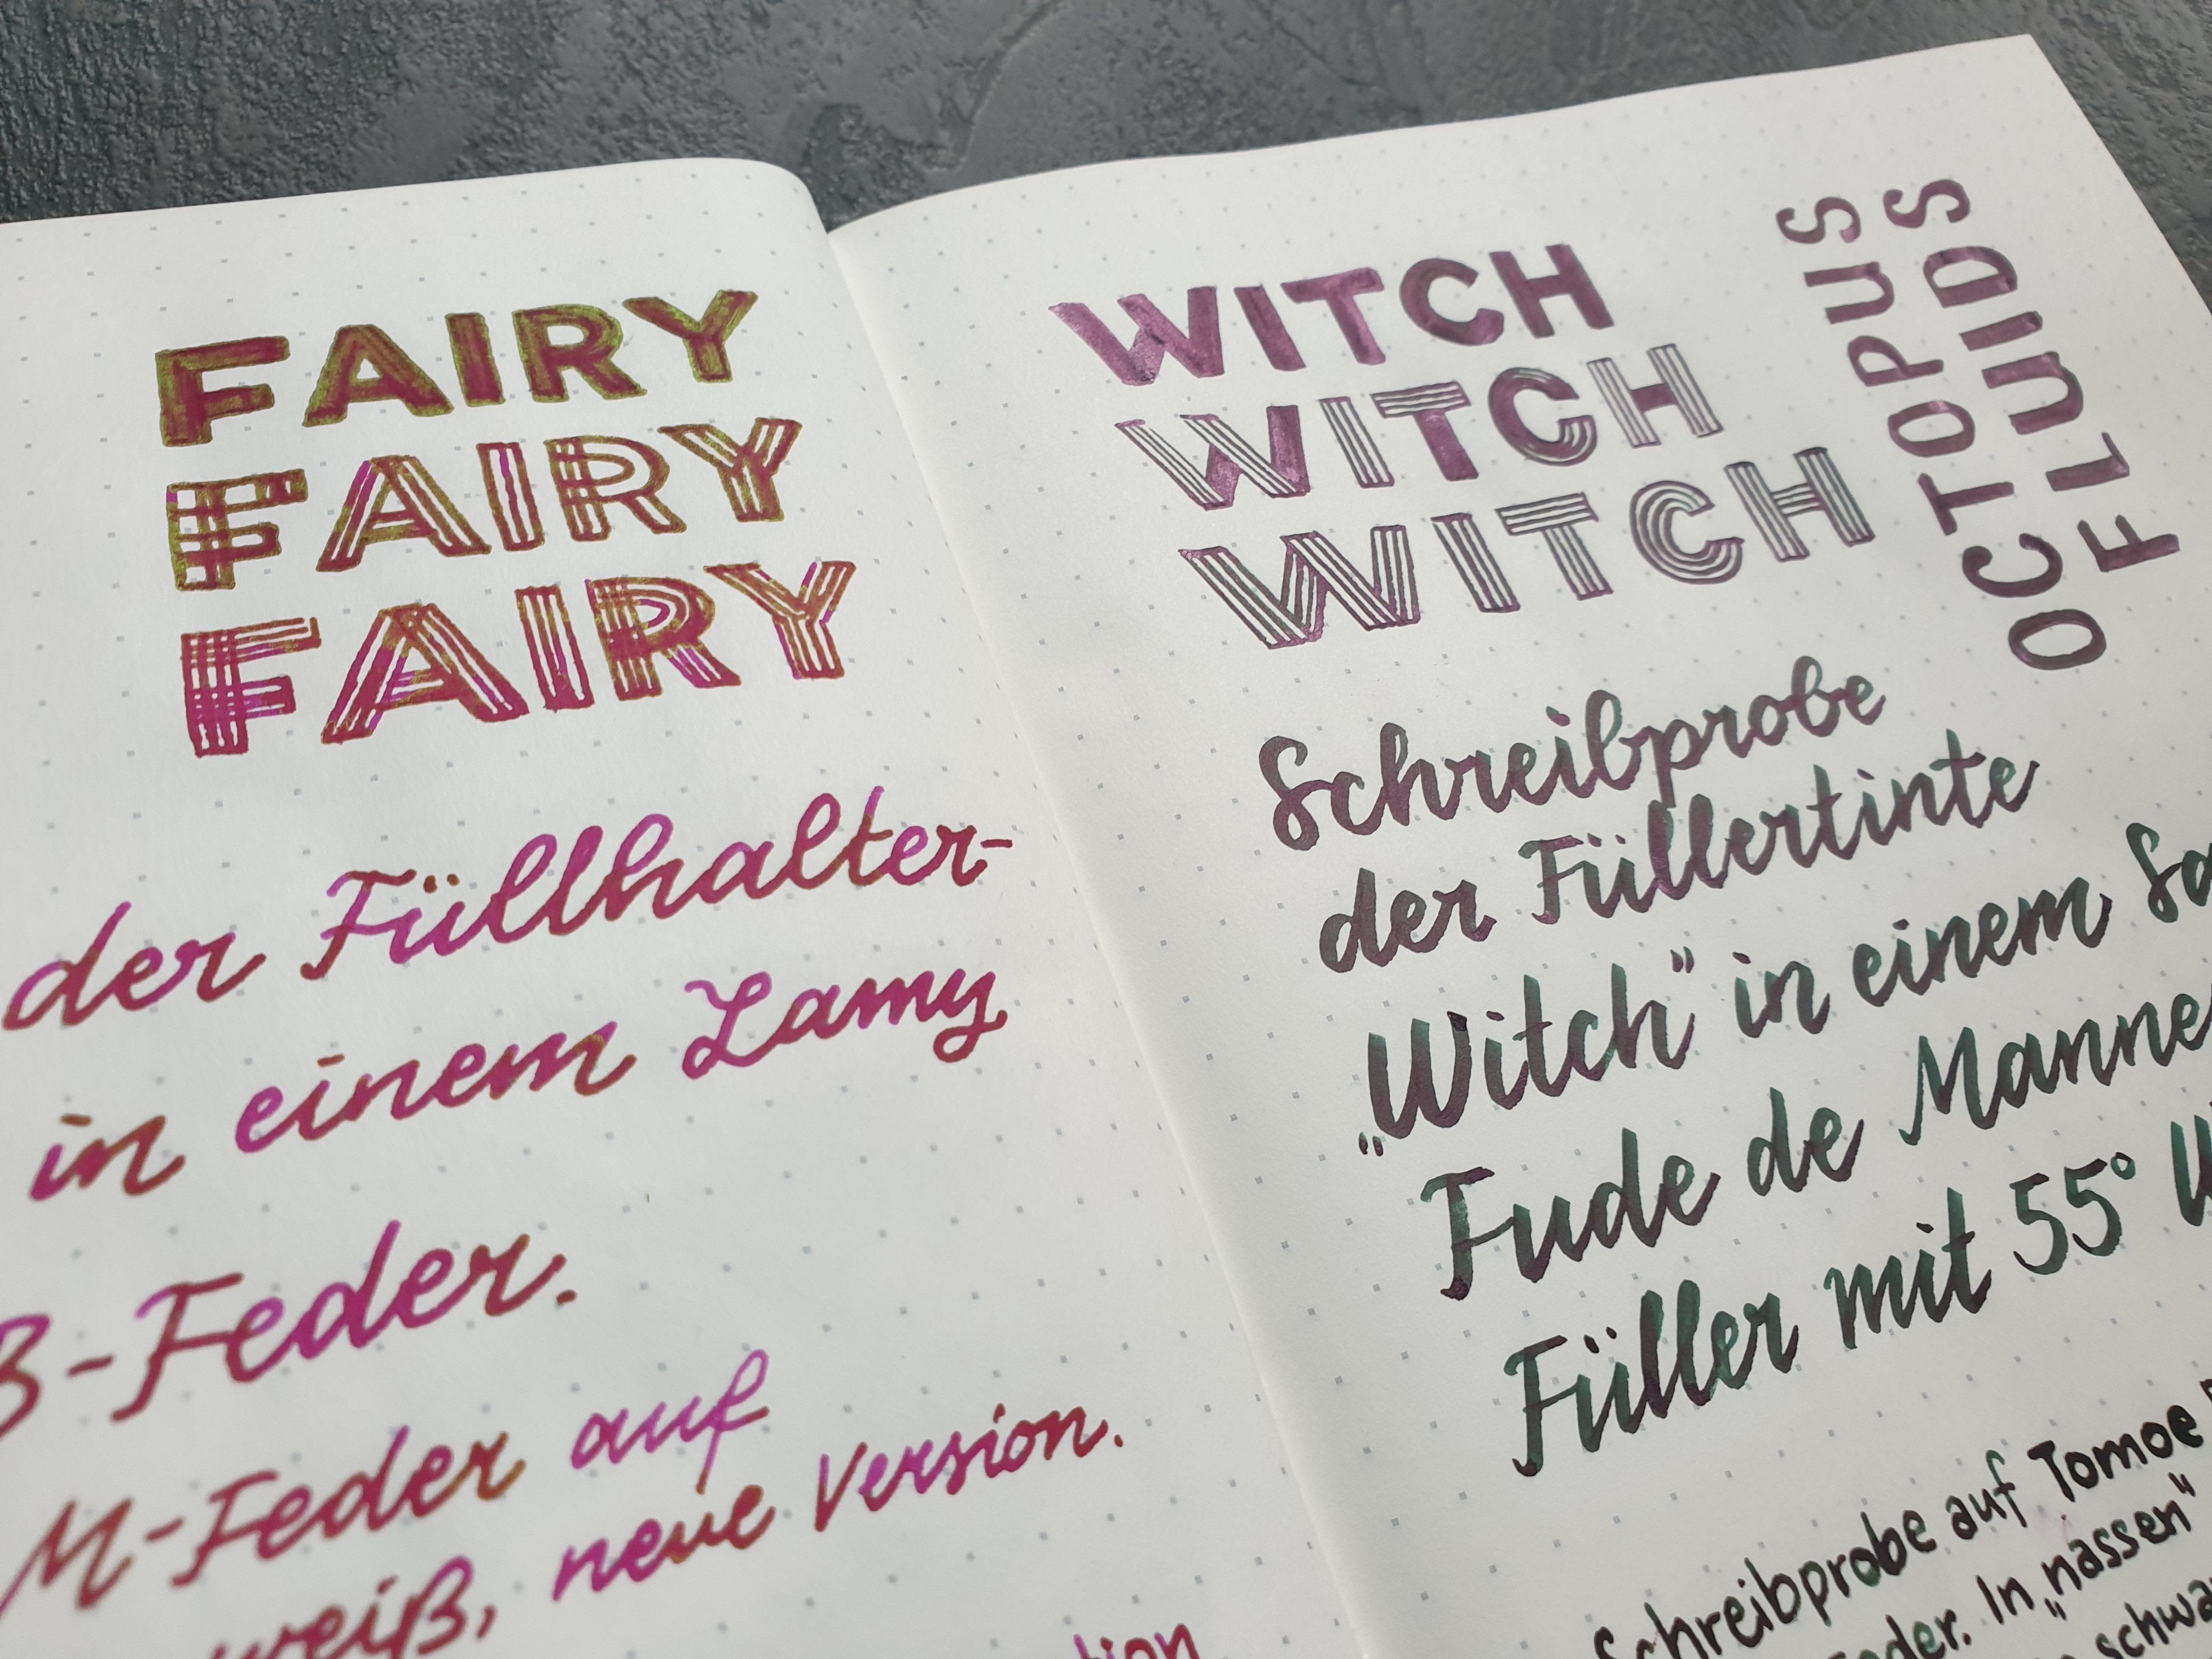 FAIRY
FAIRY
FAIRY
der Füllhalter-
in einem Lamy
B-Feder.
M-Feder auf
weiß, neue Version.
WITCH
WITCH
WITCH
OCTOPUS
FLUIDS
Schreibprobe
der Füllertinte
„Witch" in einem
Fude de Manne
Füller mit 55°
Schreibprobe auf Tomoe
In „nassen"